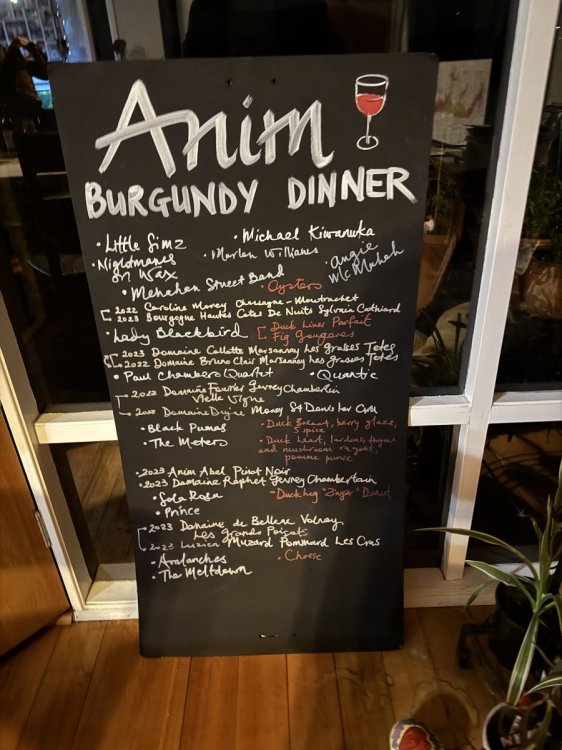 Anim
BURGUNDY DINNER
• Little Simz
• Michael Kiwanuka
• Nightmares
on Wax
• Marlen Williams
• Angie
McMahon
• Menahan Street Band
• Oysters
2022 Caroline Morey Chassagne-Montrachet
2023 Bourgogne Hautes Cotes De Nuits Sylvain Cathiard
• Lady Blackbird
Duck Liver Parfait
Fig Gougeres
2023 Domaine Collotte Marsannay Les Grasses Tetes
2022 Domaine Bruno Clair Marsannay Les Grasses Tetes
• Paul Chambers Quartet
• Quantic
Domaine Fourrier Gevrey Chamberlin
Vielle Vigne
Domaine Dujac Morey St Denis 1er Cru
• Black Pumas
• The Meters
• Duck Breast, berry glaze,
5 spice
• Duck heart, lardons, thyme
and mushroom ragout,
pomme puree
• 2023 Anim Abel Pinot Noir
• 2023 Domaine Raphet Gevrey Chambertain
• Sola Rosa
• Duck leg "Zinger" Donut
• Prince
2023 Domaine de Bellene Volnay
Les Grands Poisots
2023 Lucien Muzard Pommard Les Cras
• Avalanches
• Cheese
• The Meltdown